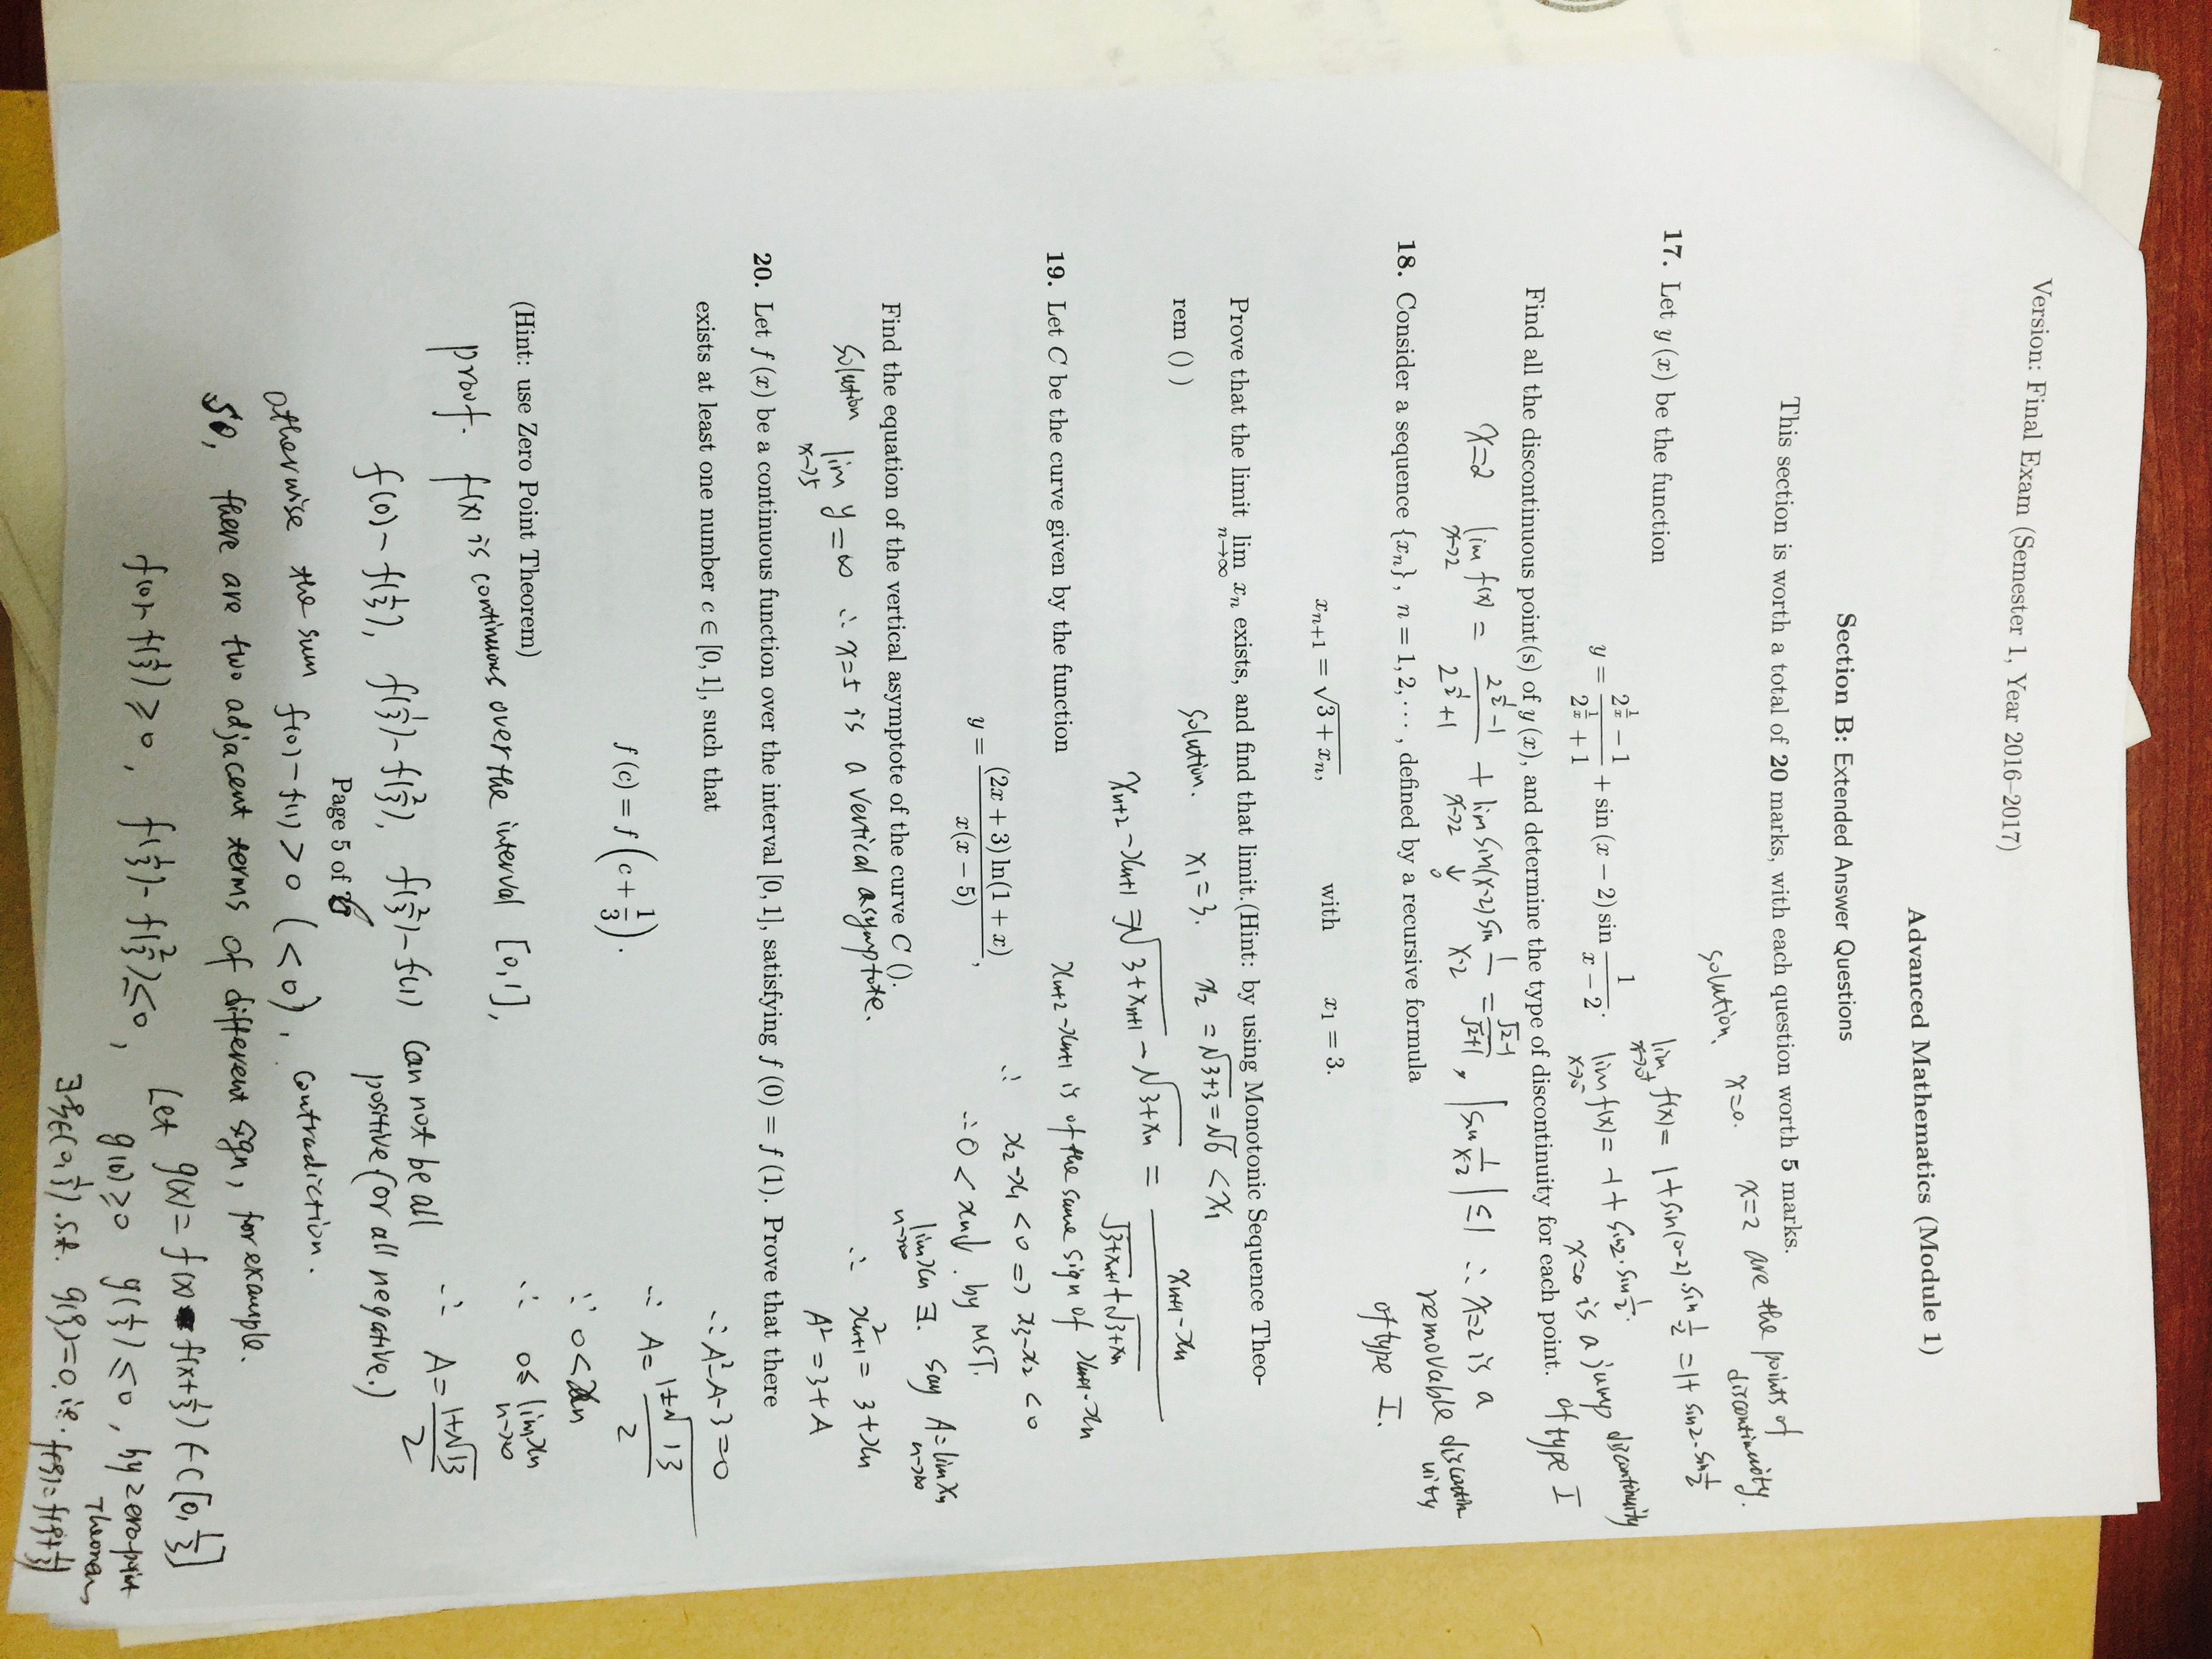 Version: Final Exam (Semester 1, Year 2016–2017)
Advanced Mathematics (Module 1)
Section B: Extended Answer Questions
This section is worth a total of 20 marks, with each question worth 5 marks.
solution. x=0. x=2 are the points of discontinuity.
17. Let y (x) be the function
lim x→0⁺ f(x) = 1+sin(0-2)·sin 1/-2 = 1+ sin2·sin 1/2
y = (2^(1/x) − 1)/(2^(1/x) + 1) + sin (x − 2) sin 1/(x − 2).
lim x→0⁻ f(x) = -1+ sin2·sin 1/2.
x=0 is a jump discontinuity of type I
Find all the discontinuous point(s) of y (x), and determine the type of discontinuity for each point.
x=2 lim x→2 f(x) = (2^(1/2) -1)/(2^(1/2) +1) + lim x→2 sin(x-2) sin 1/(x-2) = (√2-1)/(√2+1), |sin 1/(x-2)| ≤1 ∴ x=2 is a
↓
0
removable discontinuity
of type I.
18. Consider a sequence {xn}, n = 1, 2, ⋯, defined by a recursive formula
xn+1 = √(3 + xn), with x1 = 3.
Prove that the limit lim n→∞ xn exists, and find that limit.(Hint: by using Monotonic Sequence Theo-
rem () )
solution. x1=3. x2 = √(3+3) = √6 < x1
xn+2 - xn+1 = √(3+xn+1) - √(3+xn) = (xn+1 - xn)/(√(3+xn+1) + √(3+xn))
xn+2 - xn+1 is of the same sign of xn+1 - xn
∴ x2 - x1 < 0 ⇒ x3 - x2 < 0
∴ 0 < xn↓. by MST.
lim n→∞ xn ∃. say A = lim n→∞ xn
∴ xn+1² = 3+xn
A² = 3+A
∴ A²-A-3=0
∴ A = (1±√13)/2
∵ 0 < xn
∴ 0 ≤ lim n→∞ xn
∴ A = (1+√13)/2
19. Let C be the curve given by the function
y = (2x + 3) ln(1 + x)/(x(x − 5)),
Find the equation of the vertical asymptote of the curve C ().
solution lim x→5 y = ∞ ∴ x=5 is a vertical asymptote.
20. Let f (x) be a continuous function over the interval [0, 1], satisfying f (0) = f (1). Prove that there
exists at least one number c ∈ [0, 1], such that
f (c) = f (c + 1/3).
(Hint: use Zero Point Theorem)
proof. f(x) is continuous over the interval [0,1],
f(0) - f(1/3), f(1/3) - f(2/3), f(2/3) - f(1) can not be all
positive (or all negative.)
Page 5 of 6
otherwise the sum f(0) - f(1) > 0 (<0), contradiction.
so, there are two adjacent terms of different sign, for example.
f(0) - f(1/3) ≥ 0, f(1/3) - f(2/3) ≤ 0, Let g(x) = f(x) - f(x+1/3) ∈ C[0, 1/3]
g(0) ≥ 0 g(1/3) ≤ 0, by zero point Theorem,
∃ ξ∈(0, 1/3). s.t. g(ξ)=0, i.e. f(ξ) = f(ξ+1/3)